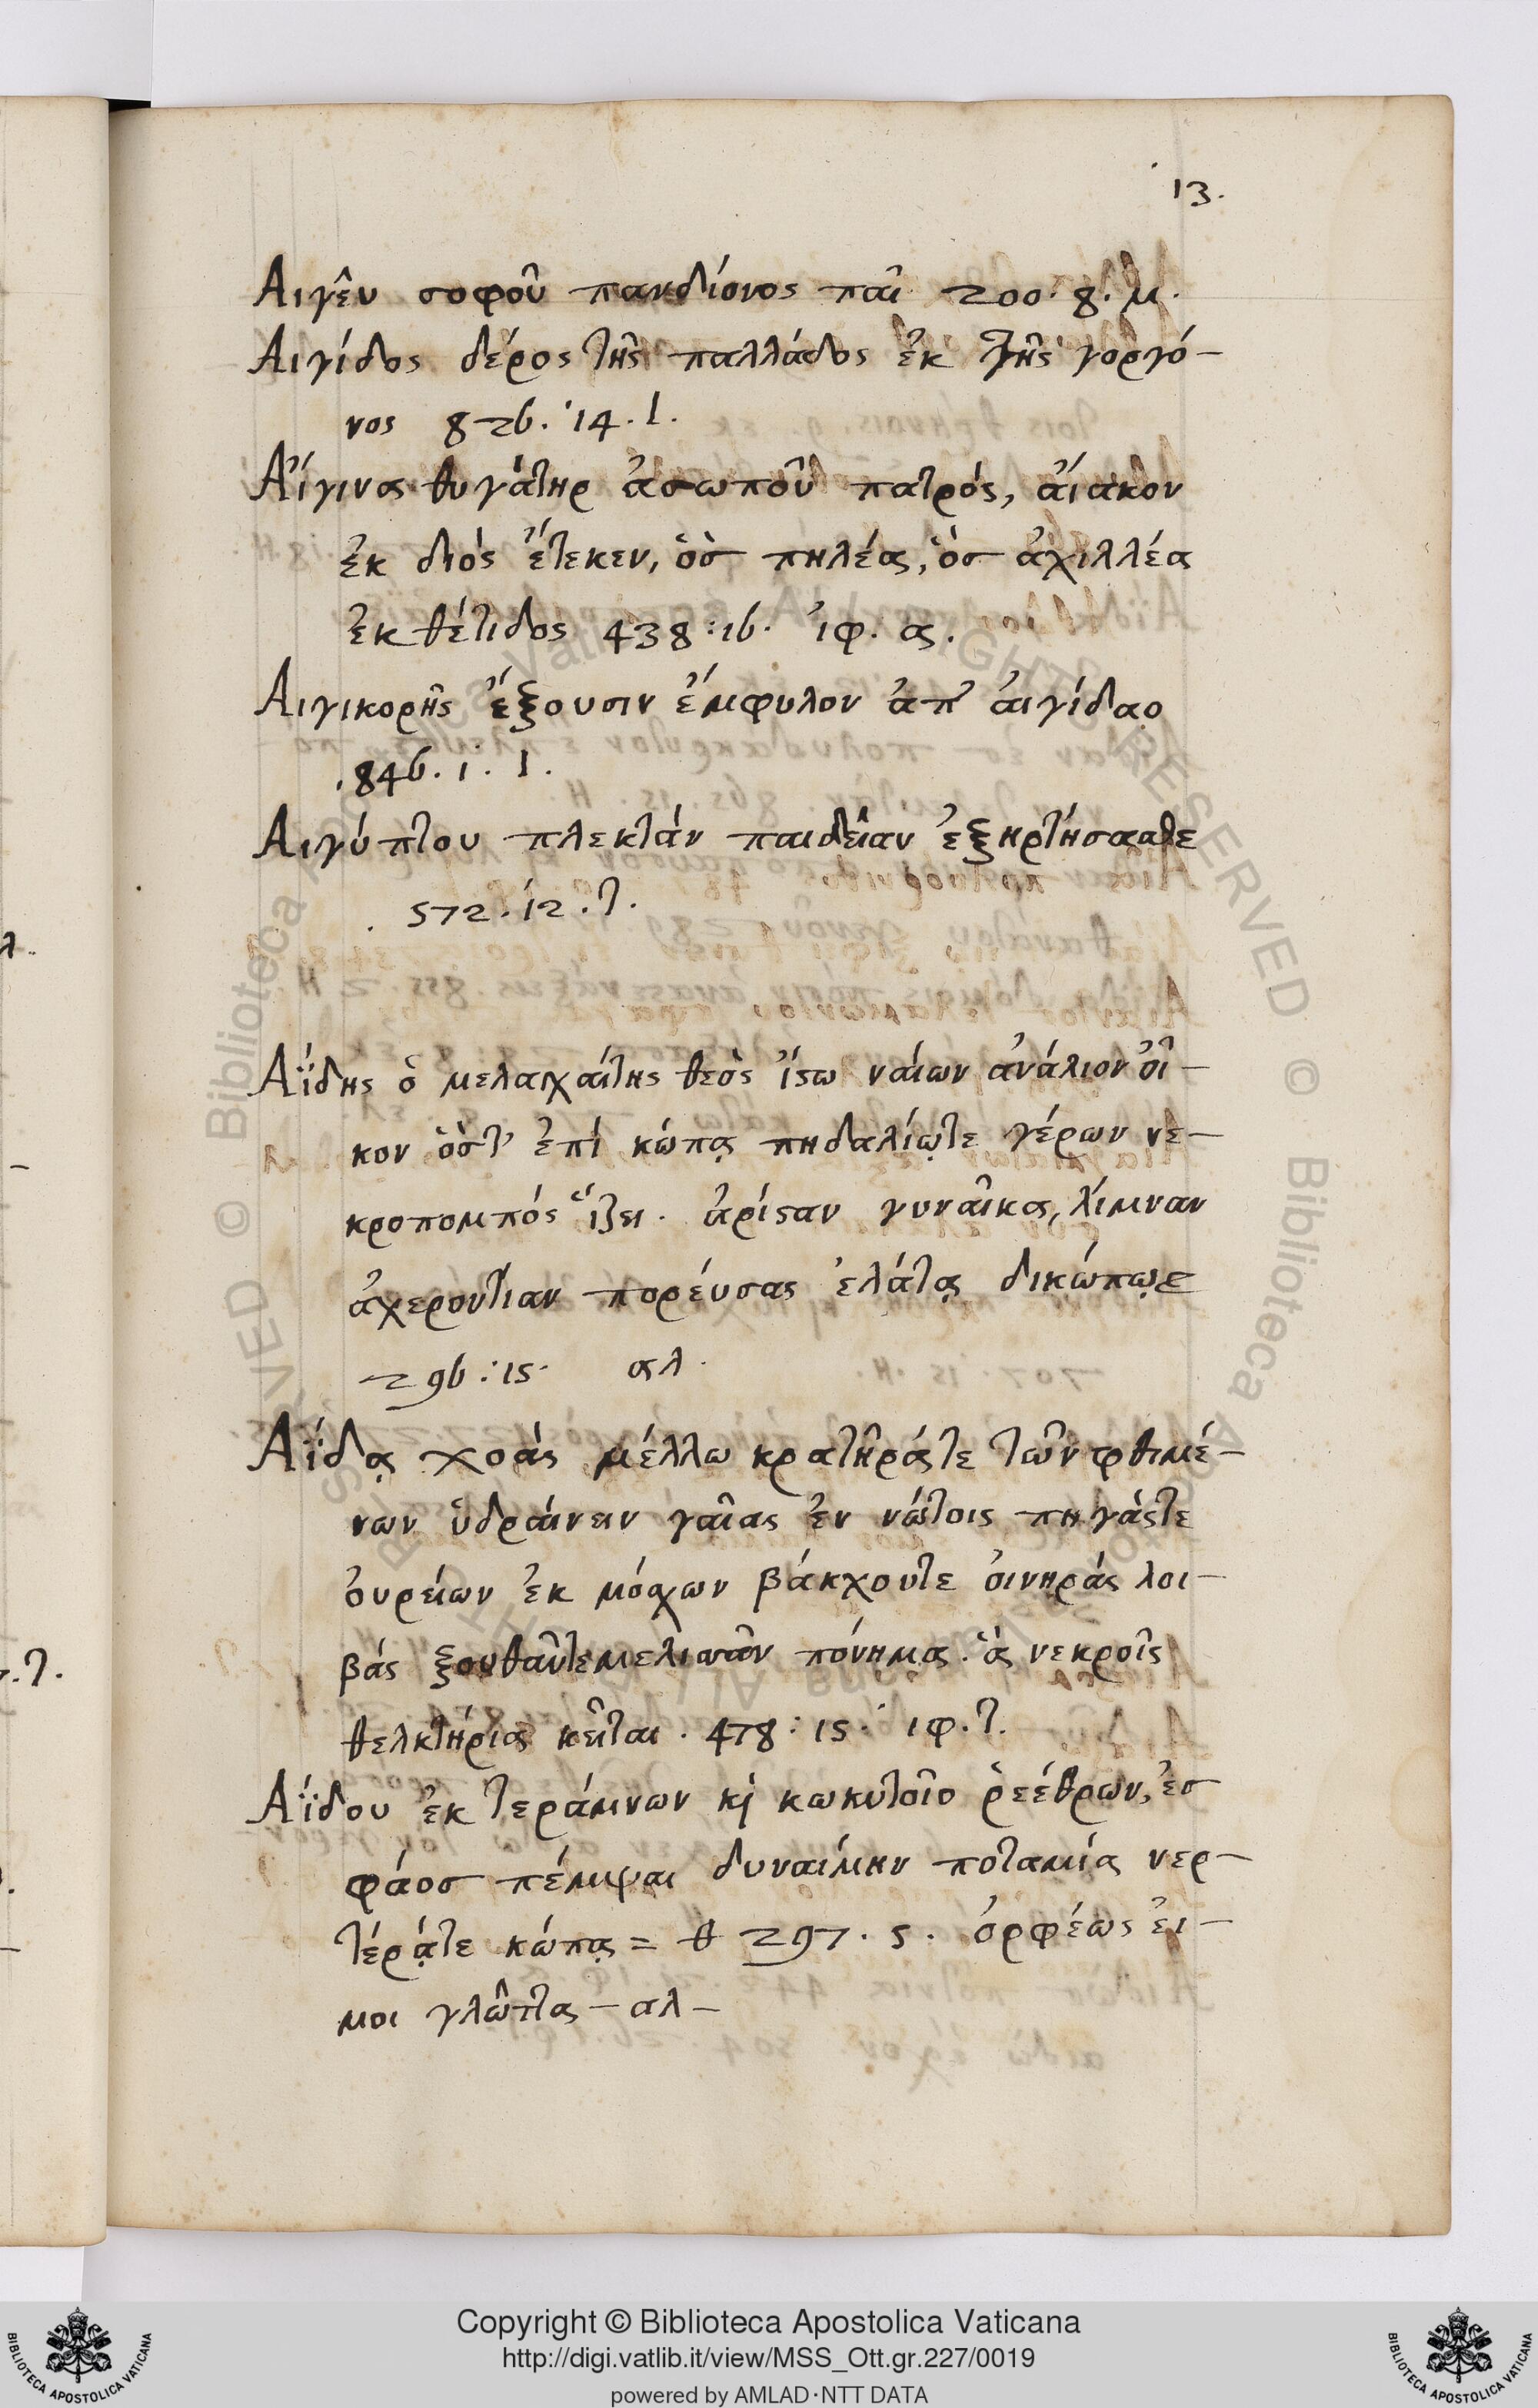 13.
Αιγεῦ σοφοῦ πανδίονος παῖ 200. 8. μ.
Αιγίδος δέρος τῆς παλλάδος ἐκ τῆς γοργό-
νος 826. 14. Ι.
Ἀίγινα θυγάτηρ ἀσωποῦ πατρός, ἀίακον
ἐκ διός ἔτεκεν, ὃς πηλέα, ὃς ἀχιλλέα
ἐκ θέτιδος 438 : 16. ἰφ. α.
Αιγικορῆς ἕξουσιν ἔμφυλον ἀπ' ἀιγίδαο
846. 1. Ι.
Αιγύπτου πλεκτὰν παιδείαν ἐξηρτήσασθε
572. 12. τ.
Ἀΐδης ὁ μελαγχαίτης θεὸς ἴστω ναίων ἀνάλιον οἶ-
κον ὅς τ' ἐπὶ κώπᾳ πηδαλίῳτε γέρων νε-
κροπομπός ἵζει. ἀρίσταν γυναῖκα, λίμναν
ἀχεροντίαν πορέυσας ἐλάτᾳ δικώπῳ
296 : 15. αλ.
Ἀΐδᾳ χοὰς μέλλω κρατῆράςτε τῶν φθιμέ-
νων ὑδράινειν γάιας ἐν νώτοις πηγάςτε
ὀυρείων ἐκ μόσχων βάκχουτε ὀινηράς λοι-
βάς ξουθᾶντε μελισσᾶν πόνημα. ἃ νεκροῖς
θελκτήρια κεῖται. 478 : 15. ιφ. τ.
Ἀΐδου ἐκ τεράμνων κὶ κωκυτοῖο ῥεέθρων, ἐς
φάος πέμψαι δυναίμην ποταμίᾳ νερ-
τέρᾳτε κώπᾳ = 297. 5. ὀρφέως ἔι-
μοι γλῶττα - αλ -
Copyright © Biblioteca Apostolica Vaticana
http://digi.vatlib.it/view/MSS_Ott.gr.227/0019
powered by AMLAD·NTT DATA
BIBLIOTECA APOSTOLICA VATICANA
BIBLIOTECA APOSTOLICA VATICANA